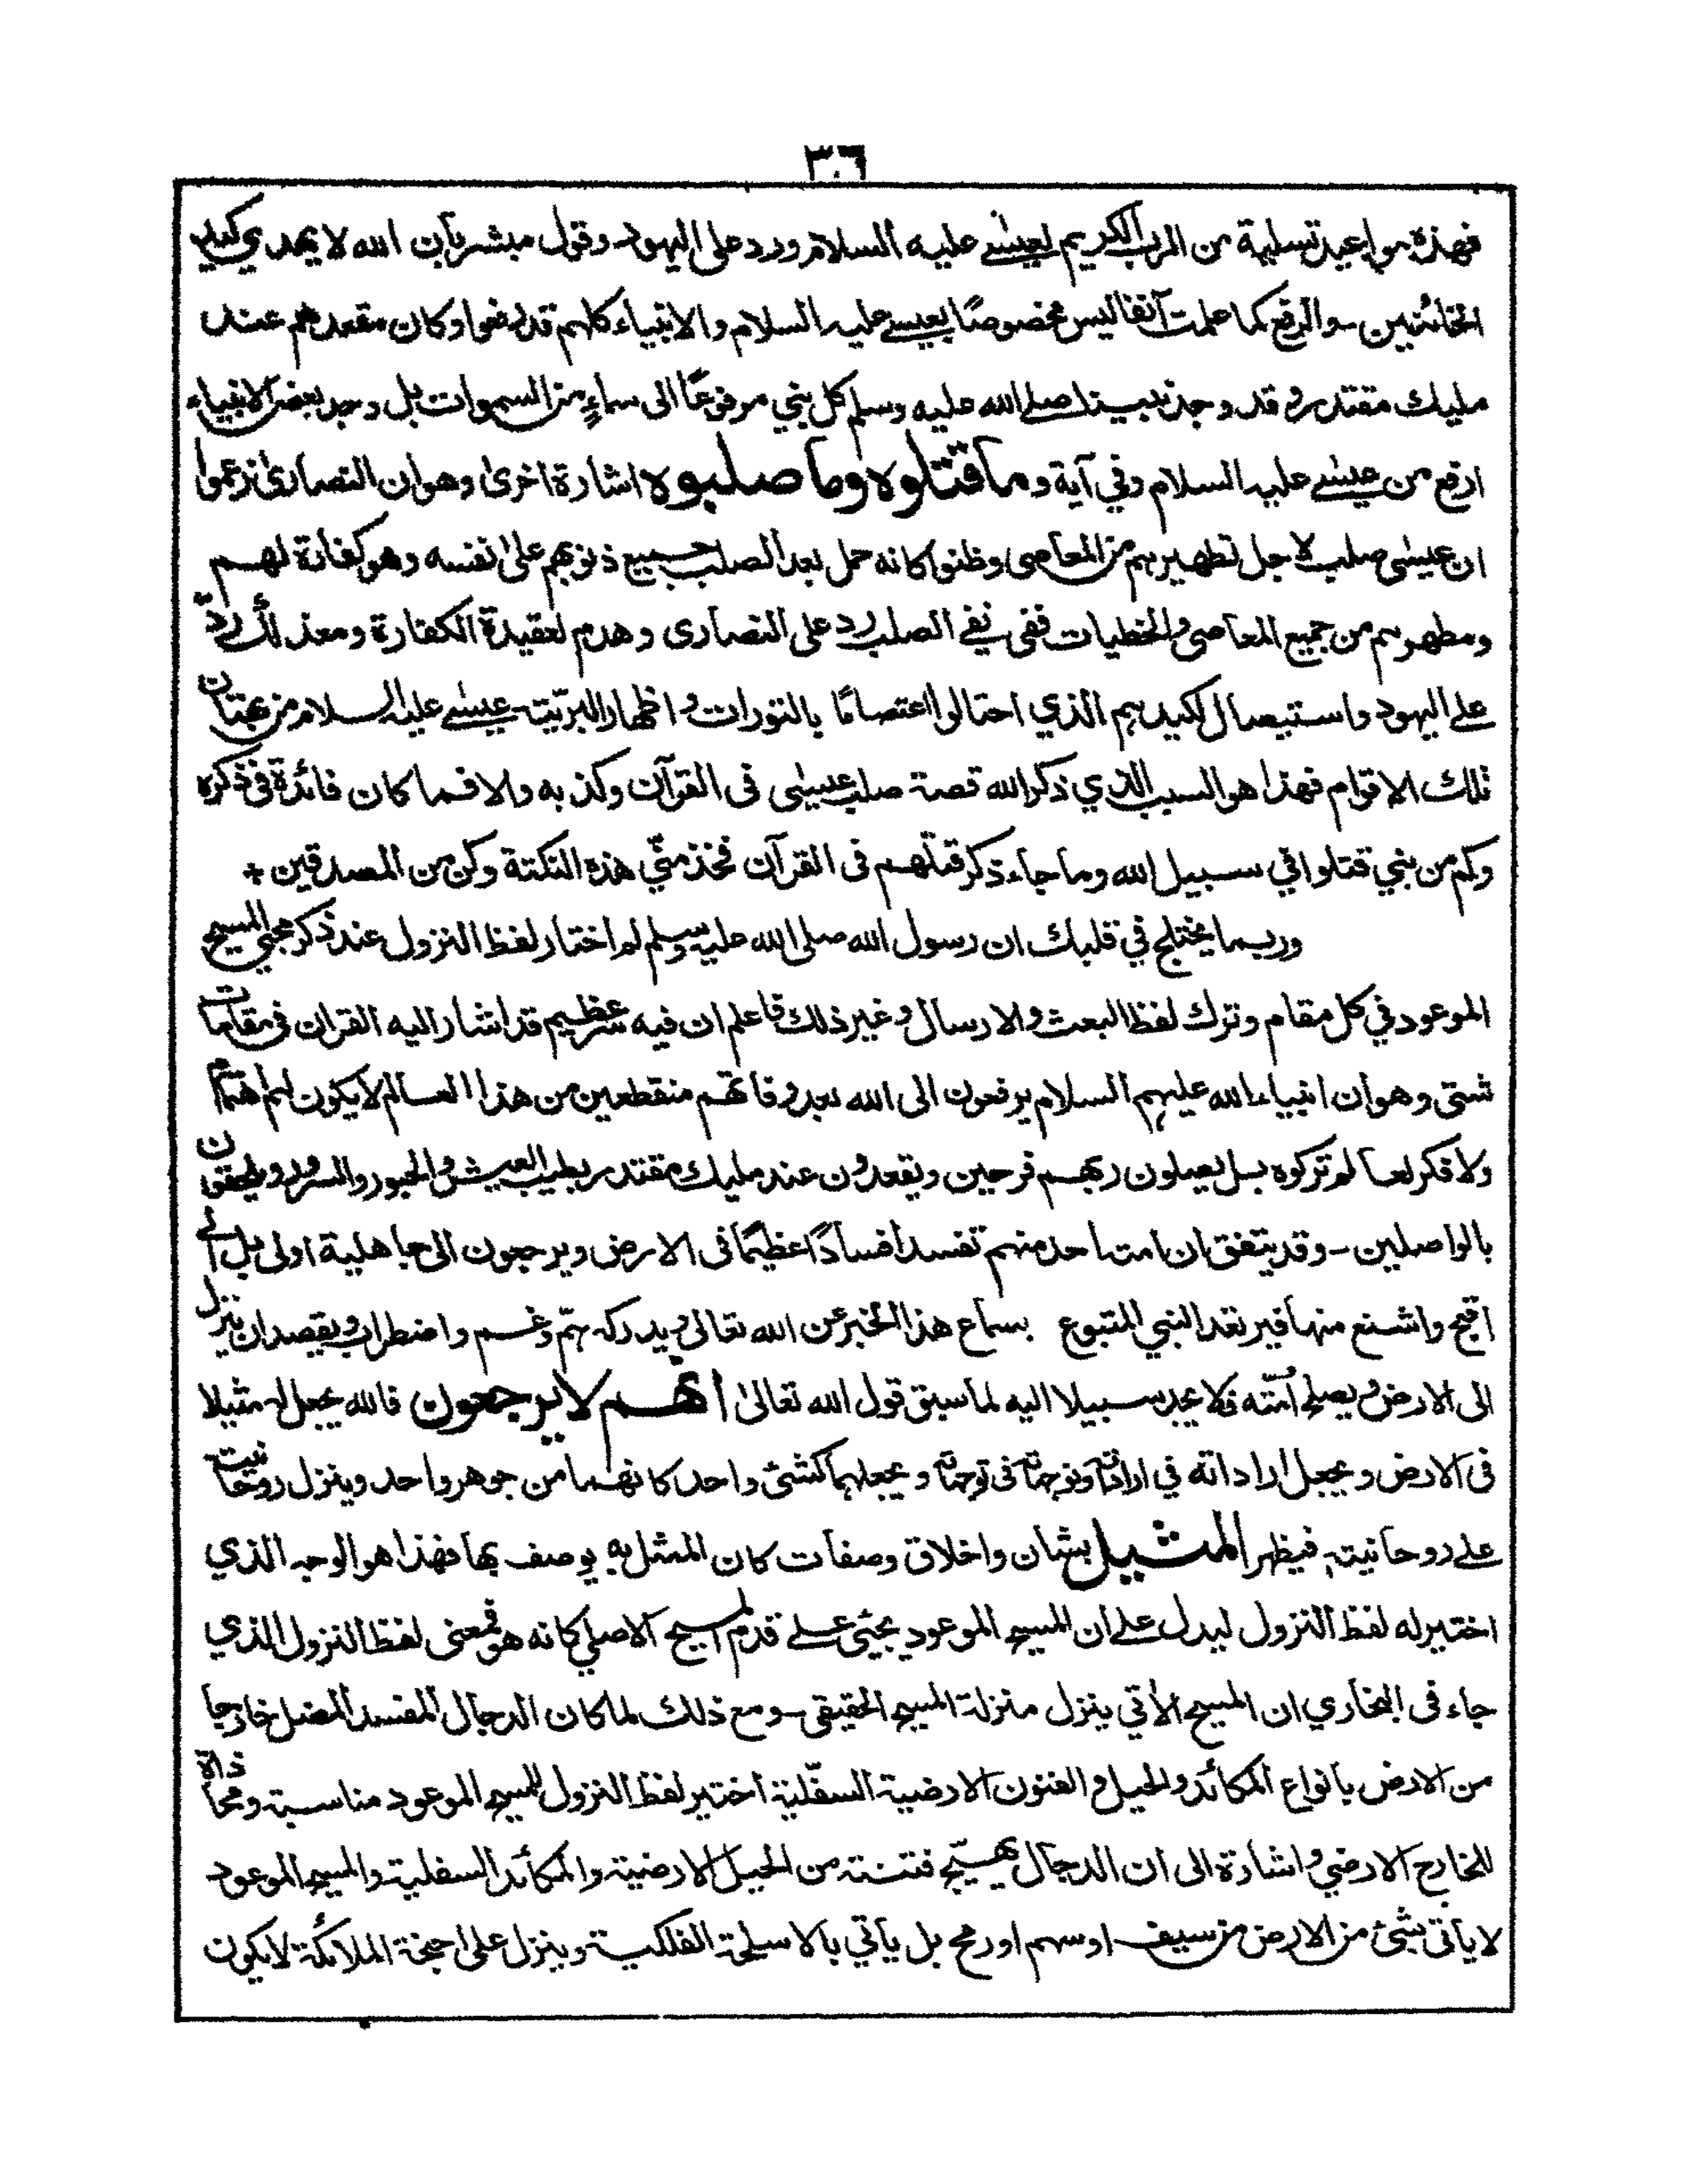 ٣٠٦
فهذه مواعيد تسلية من الرب الكريم لعيسى عليه السلام ورد على اليهود وقول مبشر بأن الله لا يهدي كيد
الخائنين - والرفع كما علمت آنفا ليس مخصوصًا بعيسى عليه السلام والانبياء كلهم قد رفعوا وكان مقعدهم عند
مليك مقتدر وقد وجد نبينا صلى الله عليه وسلم كل نبي مرفوعًا الى سماءٍ من السموات بل وجد بعض الانبياء
ارفع من عيسى عليه السلام وفي آية وما قتلوه وما صلبوه اشارة اخرى وهو ان النصارى زعموا
ان عيسى صلب لاجل تطهيرهم من المعاصى وظنوا كانه حمل بعد الصلب جميع ذنوبهم على نفسه وهو كفارة لهم
ومطهرهم من جميع المعاصى والخطيات ففى نفي الصلب رد على النصارى وهدم لعقيدة الكفارة ومع ذلك ردّ
على اليهود واستيصال لكيدهم الذي احتالوا اعتصامًا بالتورات واظهار لبريّت عيسى عليه السلام من بهتان
تلك الاقوام فهذا هو السبب الذي ذكر الله قصة صلب عيسى فى القرآن وكذبه والا فما كان فائدة فى ذكره
وكم من نبي قتلوا في سبيل الله وما جاء ذكر قتلهم فى القرآن فخذ منّي هذه النكتة وكن من المصدقين +
وربما يختلج في قلبك ان رسول الله صلى الله عليه وسلم لم اختار لفظ النزول عند ذكر مجيئ المسيح
الموعود في كل مقام وترك لفظ البعث والارسال وغير ذلك فاعلم ان فيه سر عظيم قد اشار اليه القران فى مقامات
شتى وهو أن انبياء الله عليهم السلام يرفعون الى الله بعد وفاتهم منقطعين من هذا العالم لا يكون لهم اهتمام
ولا فكر لعالم تركوه بل يصلون ربهم فرحين ويقعدون عند مليك مقتدر بطيب العيش والحبور والسرور ويلحقون
بالواصلين - وقد يتفق ان امت احد منهم تفسد افسادًا عظيمًا فى الارض ويرجعون الى جاهلية اولى بل الى
اقبح واشنع منها فيرتعد النبي المتبوع بسماع هذا الخبر عن الله تعالى ويدركه همّ وغم واضطراب ويقصد ان ينزل
الى الارض ويصلح أمّته فلا يجد سبيلا اليه لما سبق قول الله تعالى أنهم لا يرجعون فالله يجعل له مثيلا
فى الارض ويجعل اراداته في اراداته وتوجهاته فى توجهاته ويجعلهما كشئ واحد كانهما من جوهر واحد وينزل روحانيته
على روحانيته فيظهر المثيل بشان واخلاق وصفات كان الممثل به يوصف بها فهذا هو الوجه الذي
اختير له لفظ النزول ليدل على أن المسيح الموعود يجئى على قدم المسيح الاصلي كانه هو فمعنى لفظ النزول الذي
جاء فى البخاري ان المسيح الآتي ينزل منزلة المسيح الحقيقى - ومع ذلك لما كان الدجال المفسد المضل خارجا
من الارض بانواع المكائد والحيل والفنون الارضية السفّلية اختير لفظ النزول للمسيح الموعود مناسبة ومحاذاة
للخارج الارضي واشارة الى أن الدجال يهيّج فتنته من الحيل الارضية والمكائد السفلية والمسيح الموعود
لا ياتى بشئ من الارض من سيف او سهم او رمح بل يأتي بالاسلحة الفلكية وينزل على اجنحة الملائكة لا يكون